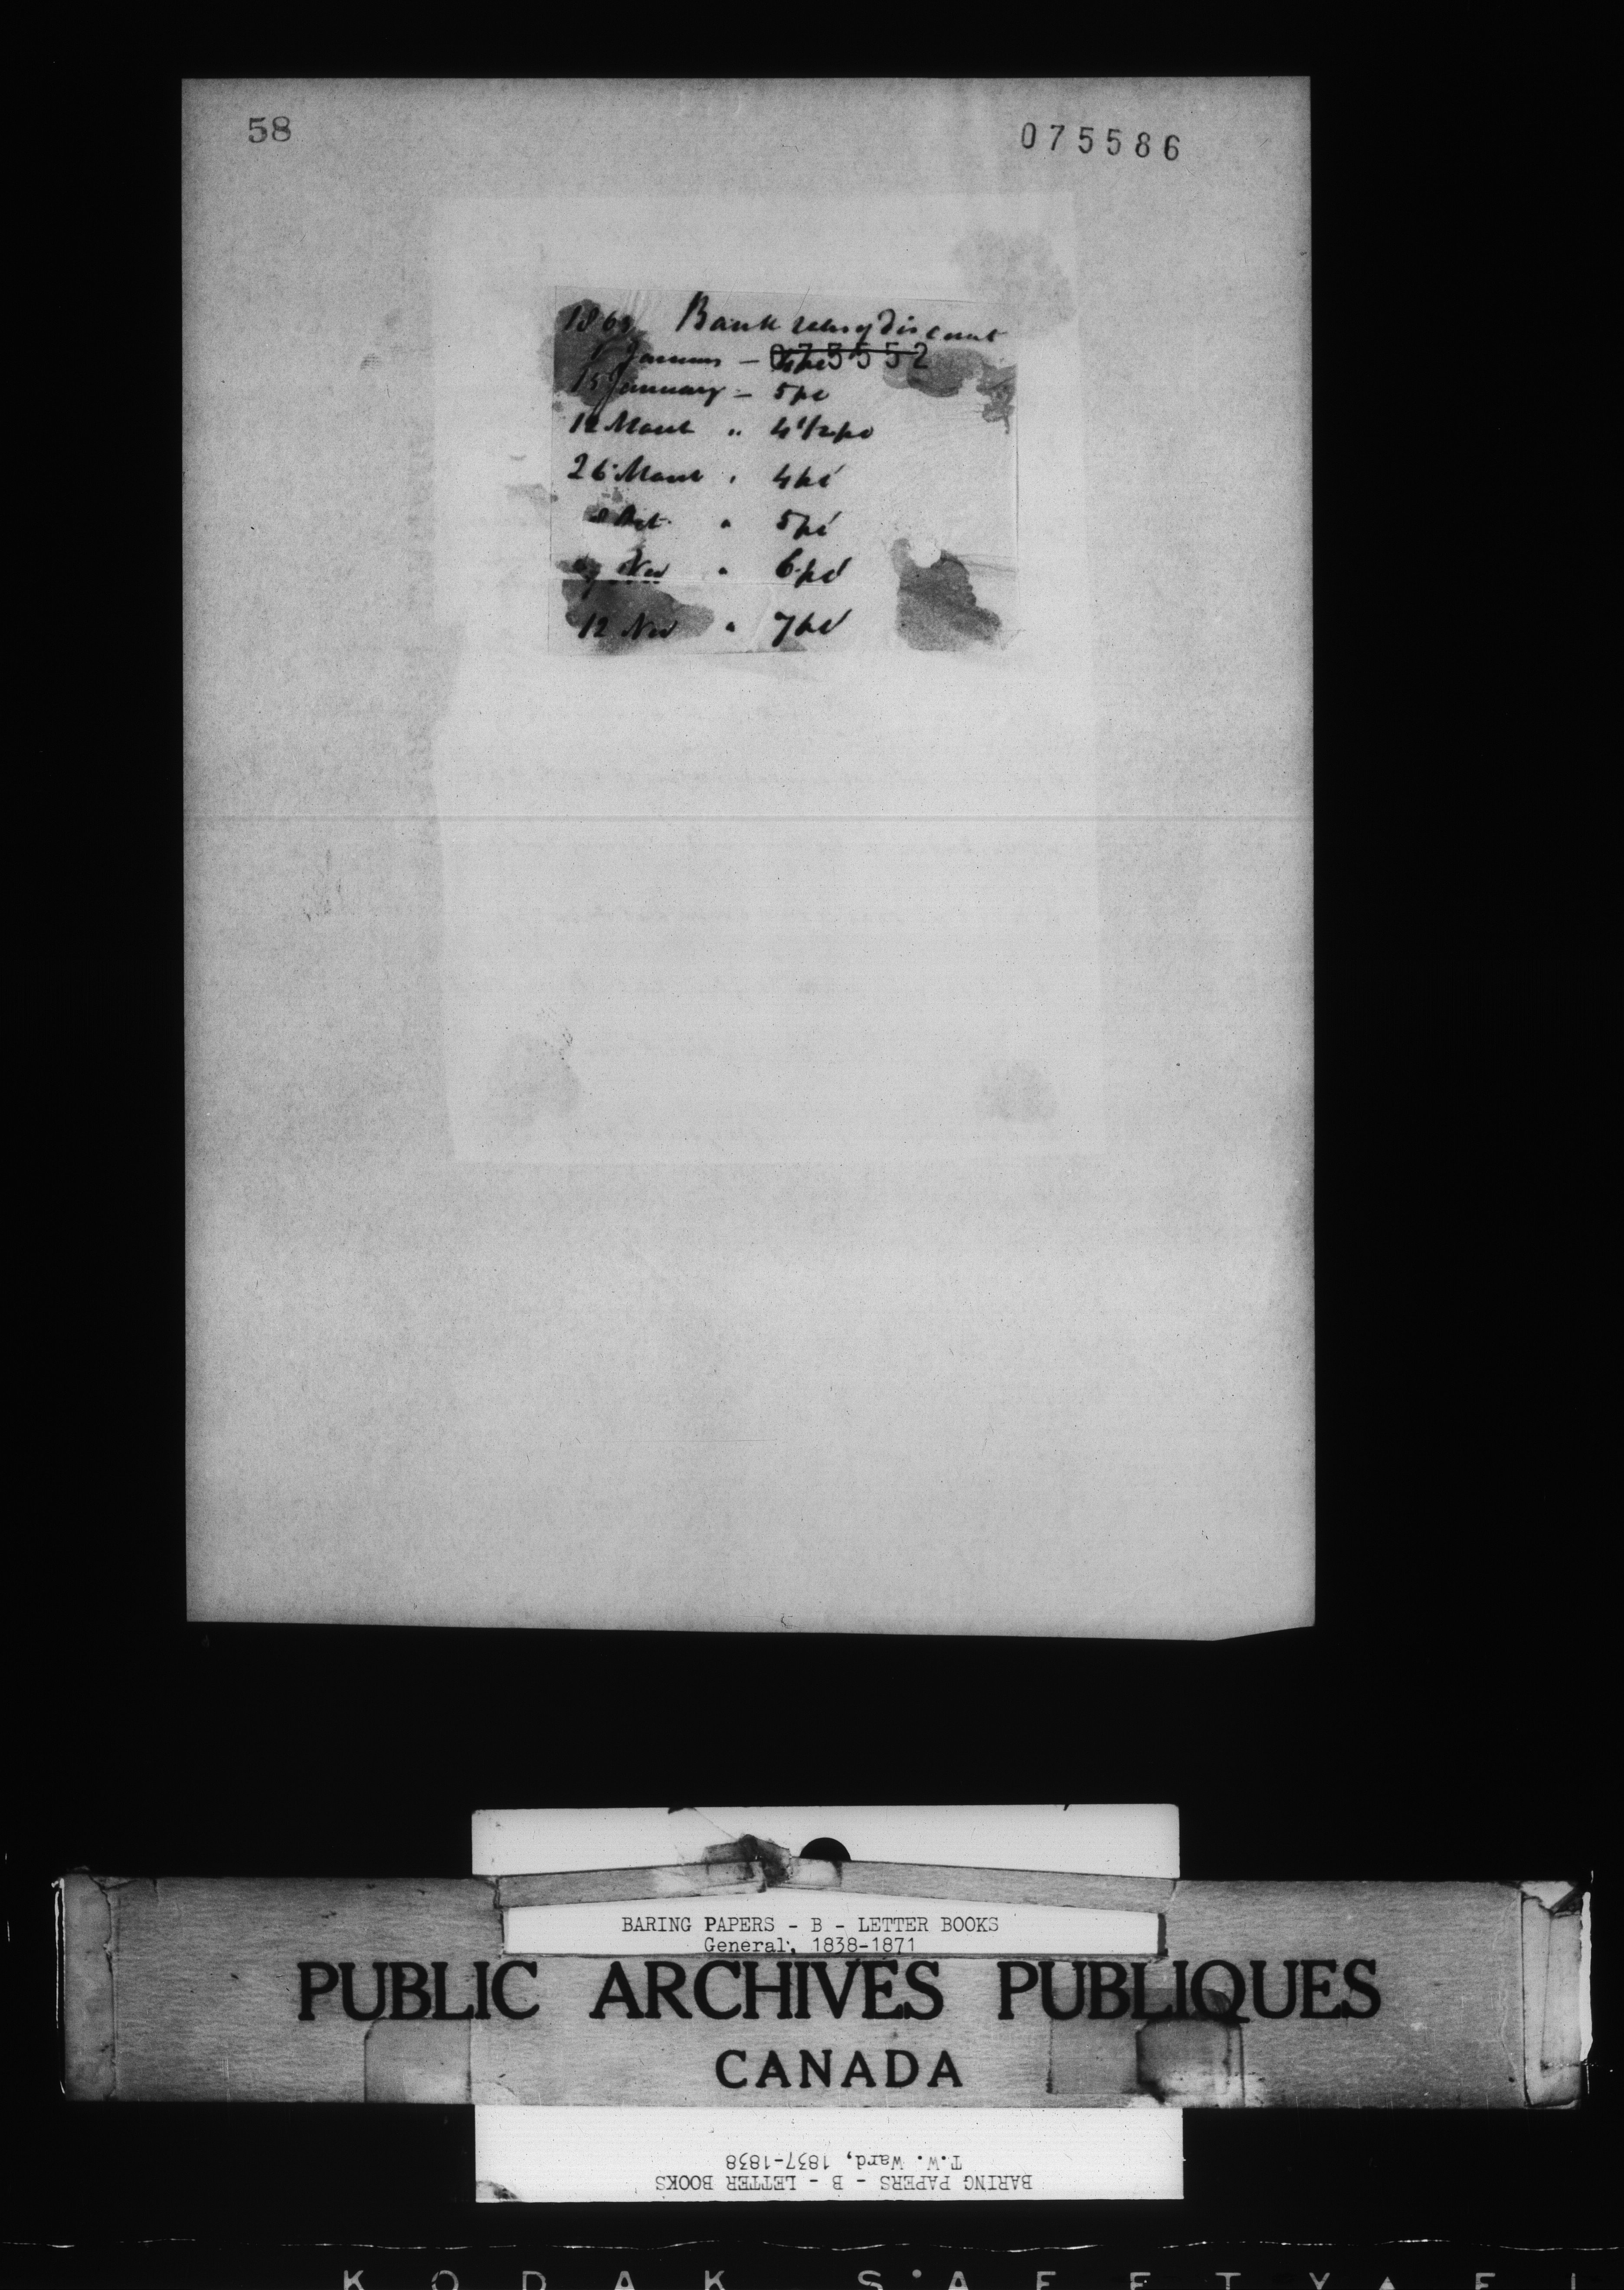 58
075586
Bank rates of discount
075552
January — 4 pc
15 January — 5 pc
12 March " 4 1/2 pc
26 March " 4 pc
8 Oct " 5 pc
Nov " 6 pc
12 Nov " 7 pc
BARING PAPERS - B - LETTER BOOKS
General, 1838-1871
PUBLIC ARCHIVES PUBLIQUES
CANADA
T.W. Ward, 1837-1838
BARING PAPERS - B - LETTER BOOKS
KODAK SAFETY FI